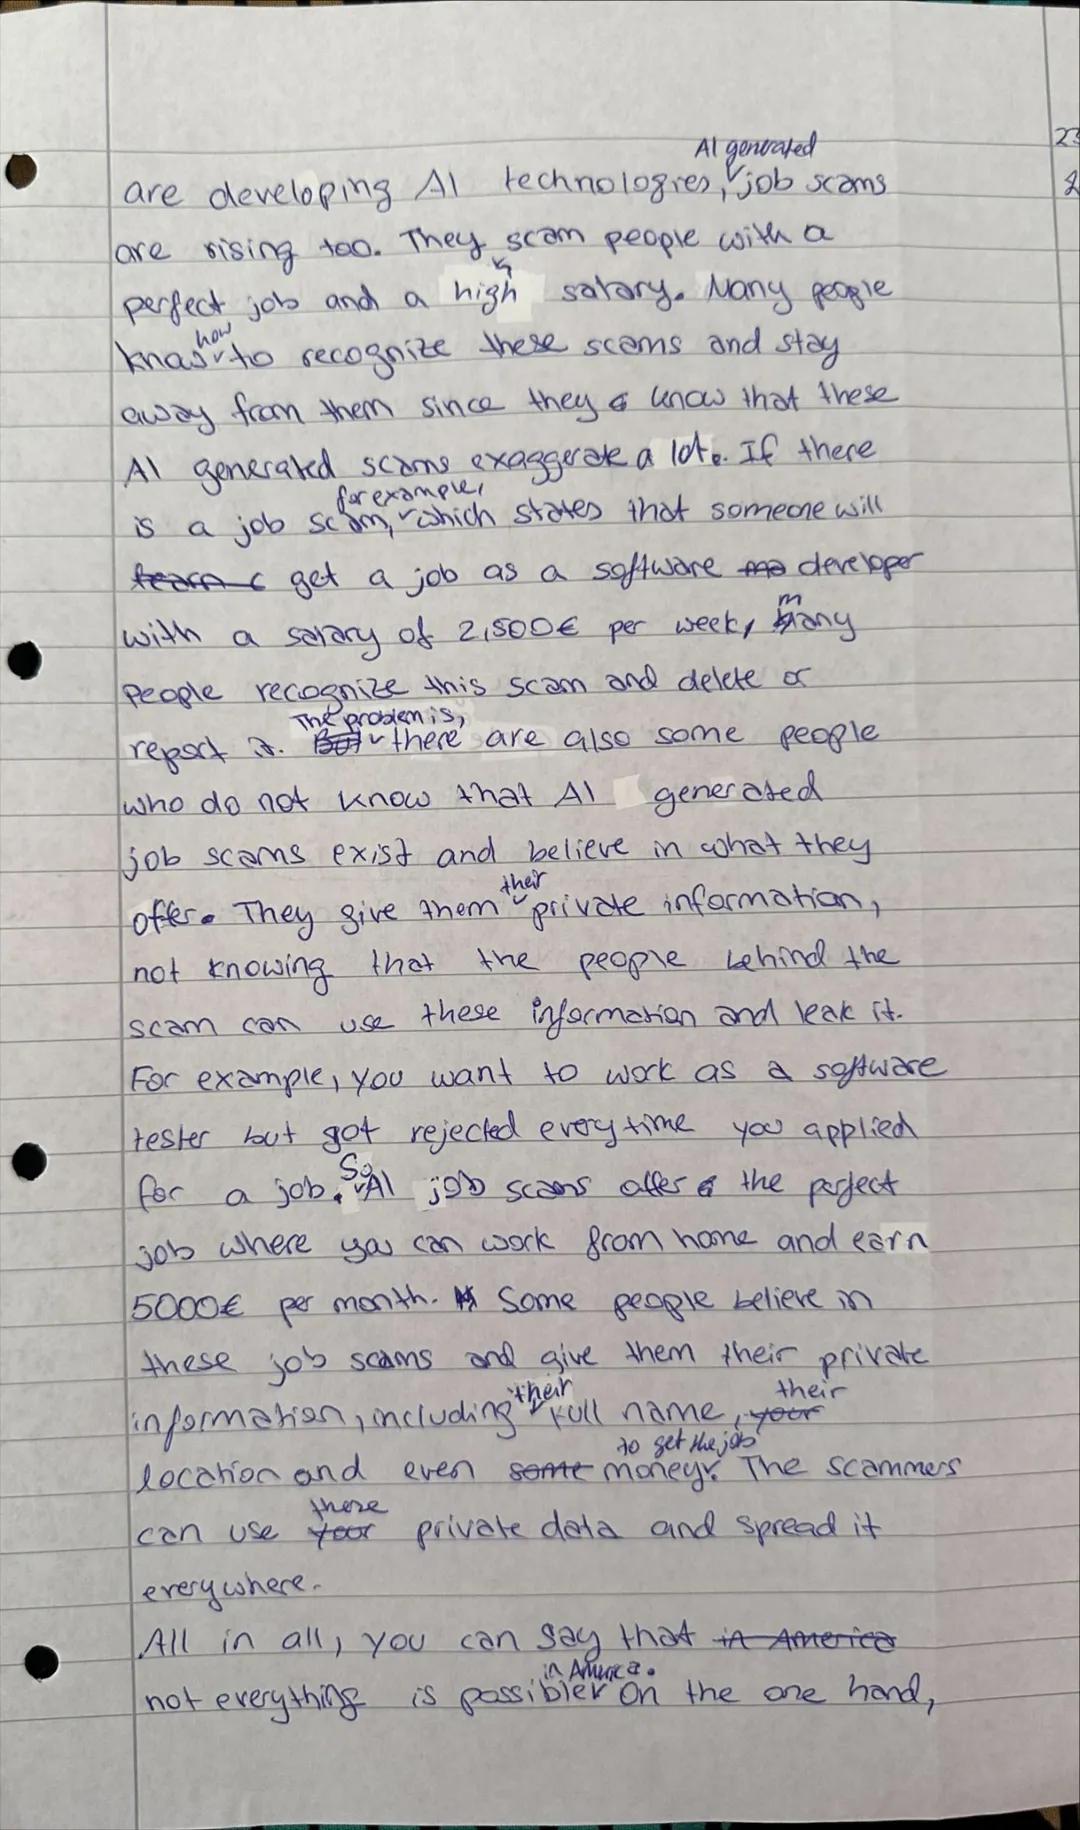 23
2
AI generated
are developing AI technologies, job scams
are rising too. They scam people with a
perfect job and a high salary. Many people
how
know to recognize these scams and stay
away from them since they know that these
AI generated scams exaggerate a lot. If there
for example,
is a job scam, which states that someone will
get a job as a software developer
with a salary of 2,500€ per week, many
people recognize this scam and delete or
The problem is,
report it. there are also some people
who do not know that AI generated
job scams exist and believe in what they
their
offer. They give them private information,
not knowing that the people behind the
scam can use these information and leak it.
For example, you want to work as a software
tester but got rejected everytime you applied
for a job. So AI job scams offer the perfect
job where you can work from home and earn
5000€ per month. Some people believe in
these job scams and give them their private
their their
information, including full name, your
to get the job
location and even some money. The scammers
these
can use your private data and spread it
everywhere.
All in all, you can say that in America
in America.
not everything is possible On the one hand,